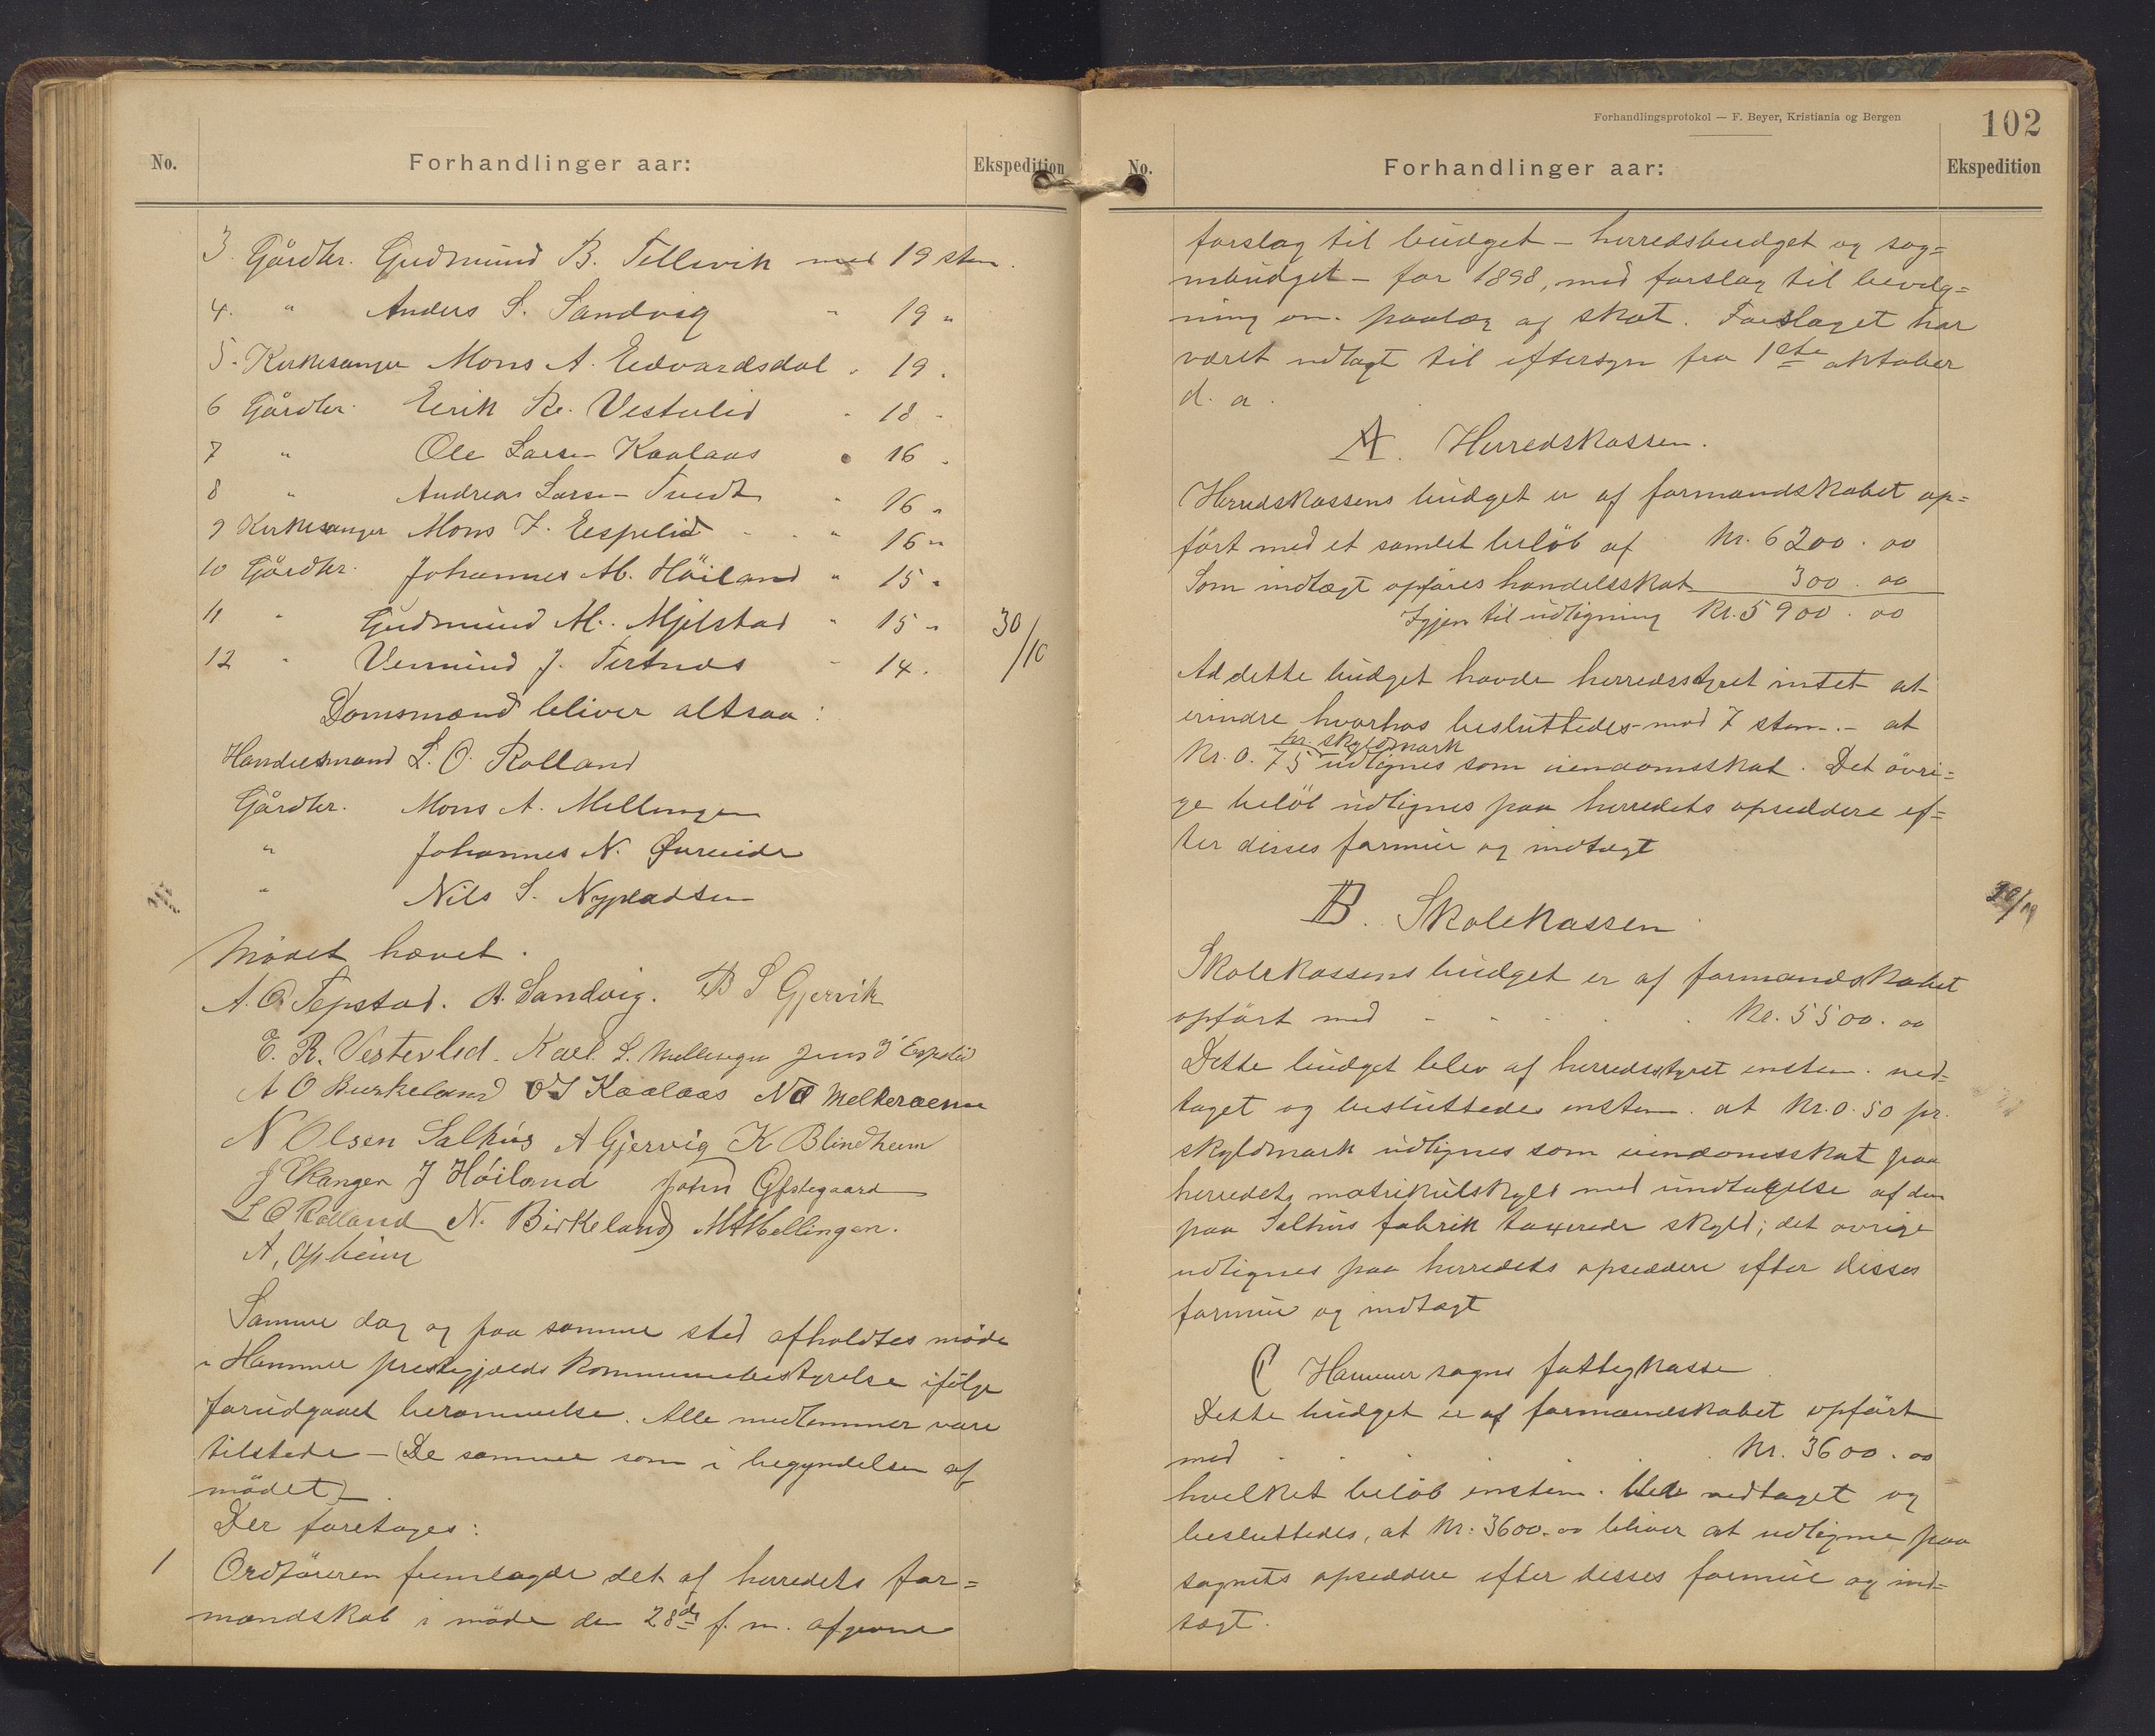 No.
Forhandlinger aar:
Ekspedition
3. Gårdbr. Gudmund B. Tellevik med 19 stm.
4. " Anders S. Sandvig " 19 "
5. Kirkesanger Mons A. Eedvardsdal " 19 "
6 Gårdbr. Eirik R. Vestvlid " 18 "
7 " Ole Larsen Kaalaas " 16 "
8 " Andreas Larsen Tvedt " 16 "
9 Kirkesanger Mons J. Eespelid " 16 "
10 Gårdbr. Johannes M. Höiland " 15 "
11 " Gudmund M. Mjelstad " 15 "
30/10
12 " Vemund J. Tertnæs " 14 "
Domsmænd bliver altsaa:
Handelsmand L. O. Rolland
Gårdbr. Mons A. Mellingen
" Johannes N. Øvreeide
" Nils S. Nypladsen
Mödet hævet.
A. O. Tepstad. A. Sandvig. B S Gjervik
E. R. Vestevlid. Karl L. Mellingen Jens J Espelid
A O Birkeland O L Kaalaas N O Melkeraaen
N Olsen Salhus A Gjervig K Blindheim
J Ekanger J Höiland John Ofstegaard
L O Rolland N. Birkeland M A Mellingen.
A. Opheim
Samme dag og paa samme sted afholdtes möde
i Hammer prestegjælds kommunebestyrelse ifölge
forudgaaet berammelse. Alle medlemmer vare
tilstede – (De samme som i begyndelsen af
mödet)
Der foretoges:
1 Ordföreren fremlagde det af herredets for=
mandskab i möde den 28de f. m. afgivne
Forhandlingsprotokol — F. Beyer, Kristiania og Bergen
102
No.
Forhandlinger aar:
Ekspedition
forslag til budget – herredsbudget og sog=
nebudget – for 1898, med forslag til bevilg=
ning om paalæg af skat. Forslaget har
været udlagt til eftersyn fra 1ste oktober
d. a.
A. Herredskassen.
Herredskassens budget er af formandskabet op=
fört med et samlet belöb af Kr. 6200.00
Som indtægt opföres handelsskat 300.00
Igjen til udligning Kr. 5900.00
Ad dette budget havde herredsstyret intet at
erindre hvorhos besluttedes – mod 7 stm. – at
pr. skyldmark
Kr. 0.75 udlignes som eiendomsskat. Det övri=
ge belöb udlignes paa herredets opsiddere ef=
ter disses formue og indtægt
B. Skolekassen
Skolekassens budget er af formandskabet
opfört med Kr. 5500.00
Dette budget blev af herredsstyret enstem. ved-
taget og besluttedes enstem. at Kr. 0.50 pr.
skyldmark udlignes som eiendomsskat paa
herredets matrikulskyld med undtagelse af den
paa Salhus fabrik taxerede skyld; det övrige
udlignes paa herredets opsiddere efter disses
formue og indtægt
C Hammer sogns fattigkasse
Dette budget er af formandskabet opfört
med Kr. 3600.00
hvilket belöb enstem. blev vedtaget og
besluttedes, at Kr. 3600.00 bliver at udligne paa
sognets opsiddere efter disses formue og ind=
tægt.